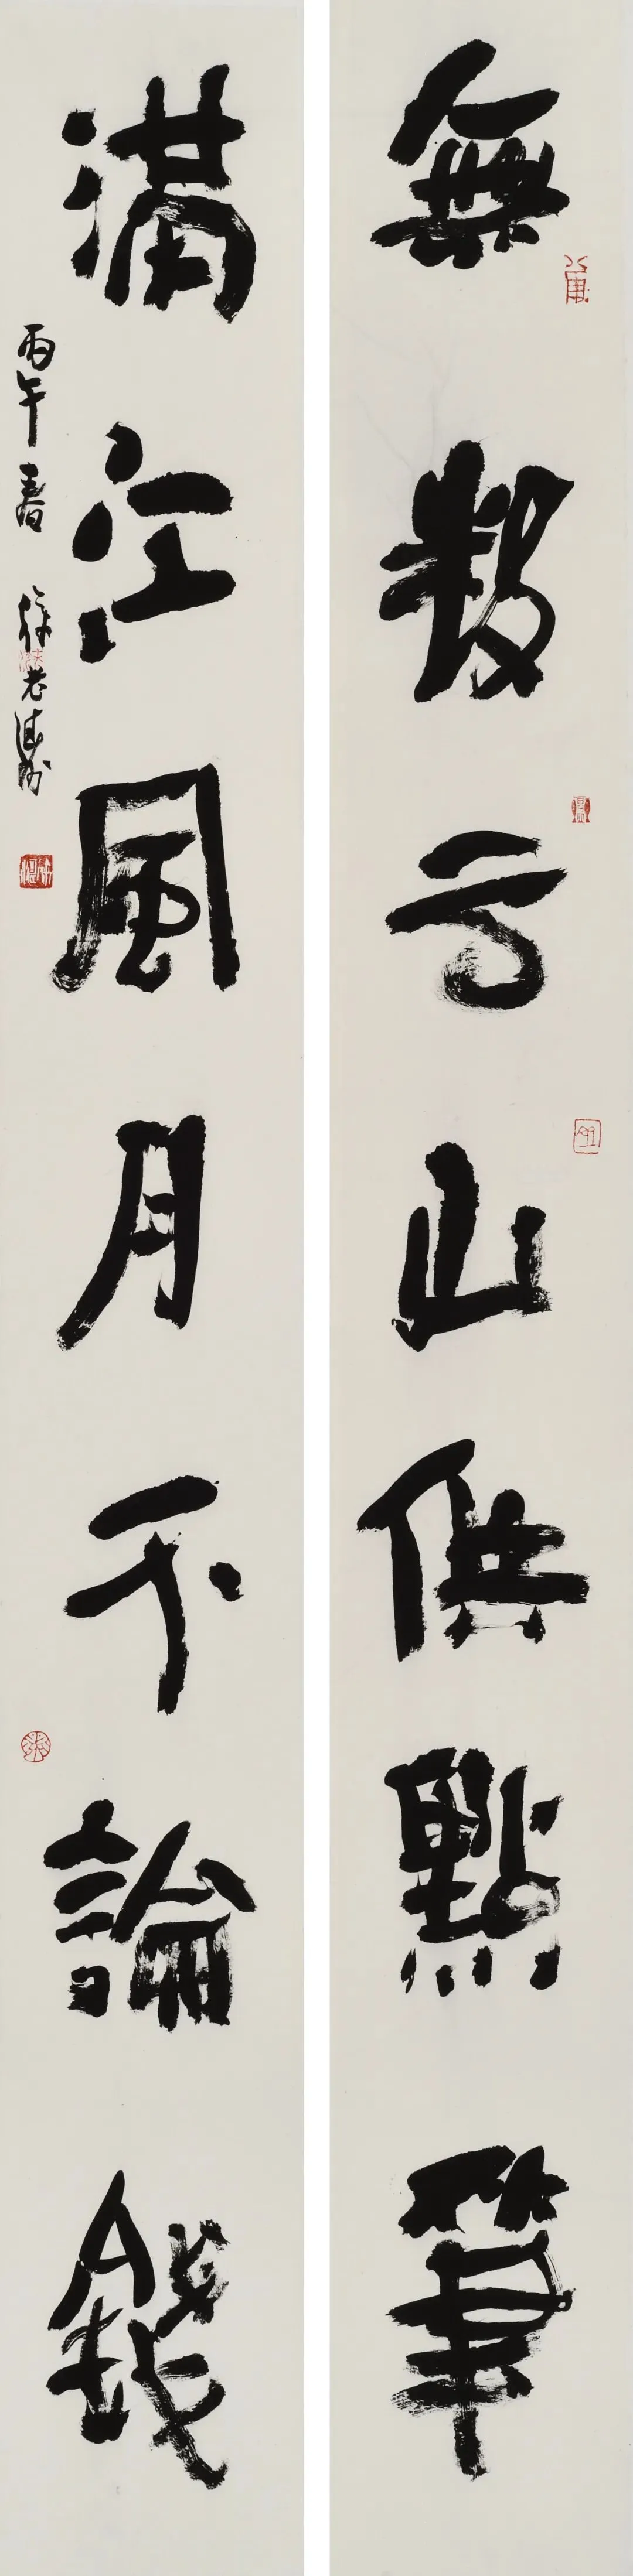 無數云山供點筆
滿江風月不論錢
丙午春 徐